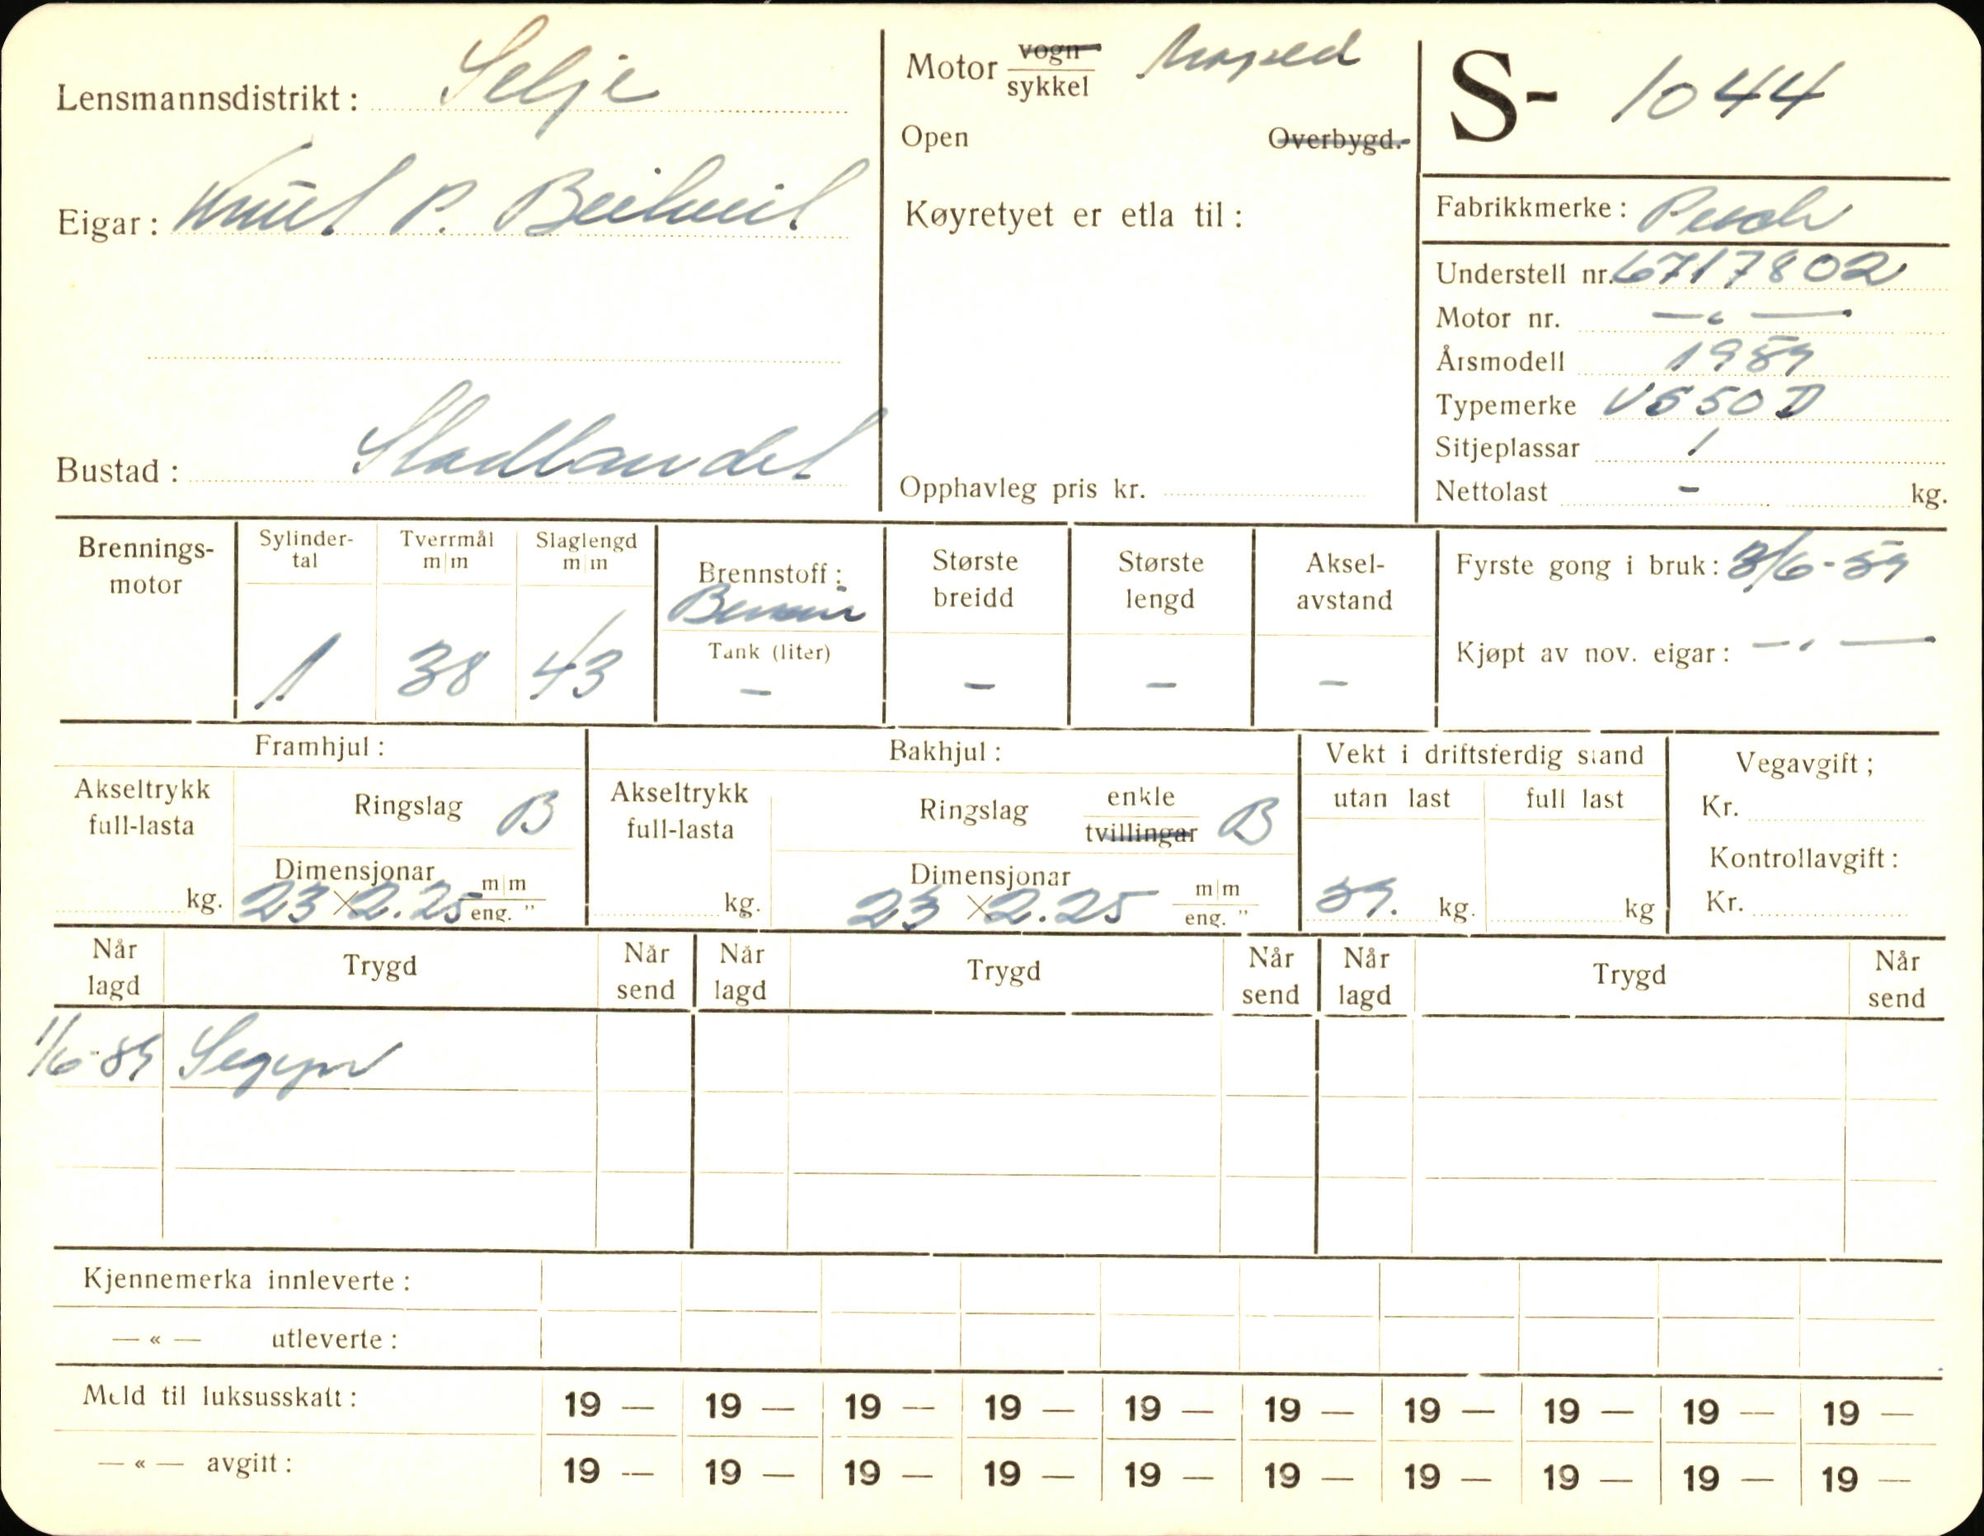 Lensmannsdistrikt: Selje
Eigar: Knut P. Beitveit
Bustad: Stadlandet
Motor vogn
sykkel Moped
Open Overbygd.
Køyretyet er etla til:
Opphavleg pris kr.
S- 1044
Fabrikkmerke: Puch
Understell nr. 6717802
Motor nr. — " —
Årsmodell 1959
Typemerke VS 50 D
Sitjeplassar 1
Nettolast - kg.
Brennings-
motor
Sylinder-
tal
1
Tverrmål
m|m
38
Slaglengd
m|m
43
Brennstoff:
Bensin
Tank (liter)
-
Største
breidd
-
Største
lengd
-
Aksel-
avstand
-
Fyrste gong i bruk: 3/6-59
Kjøpt av nov. eigar: — " —
Framhjul:
Akseltrykk
full-lasta
kg.
Ringslag B
Dimensjonar
23 x 2.25 m|m
eng. "
Bakhjul:
Akseltrykk
full-lasta
kg.
Ringslag enkle
tvillingar B
Dimensjonar
23 x 2.25 m|m
eng. "
Vekt i driftsferdig stand
utan last full last
59. kg. kg
Vegavgift;
Kr.
Kontrollavgift:
Kr.
Når
lagd Trygd Når
send Når
lagd Trygd Når
send Når
lagd Trygd Når
send
1/6-59
Kjennemerka innleverte:
— « — utleverte:
Meld til luksusskatt: 19 — 19 — 19 — 19 — 19 — 19 — 19 — 19 — 19 — 19 —
— « — avgift: 19 — 19 — 19 — 19 — 19 — 19 — 19 — 19 — 19 — 19 —